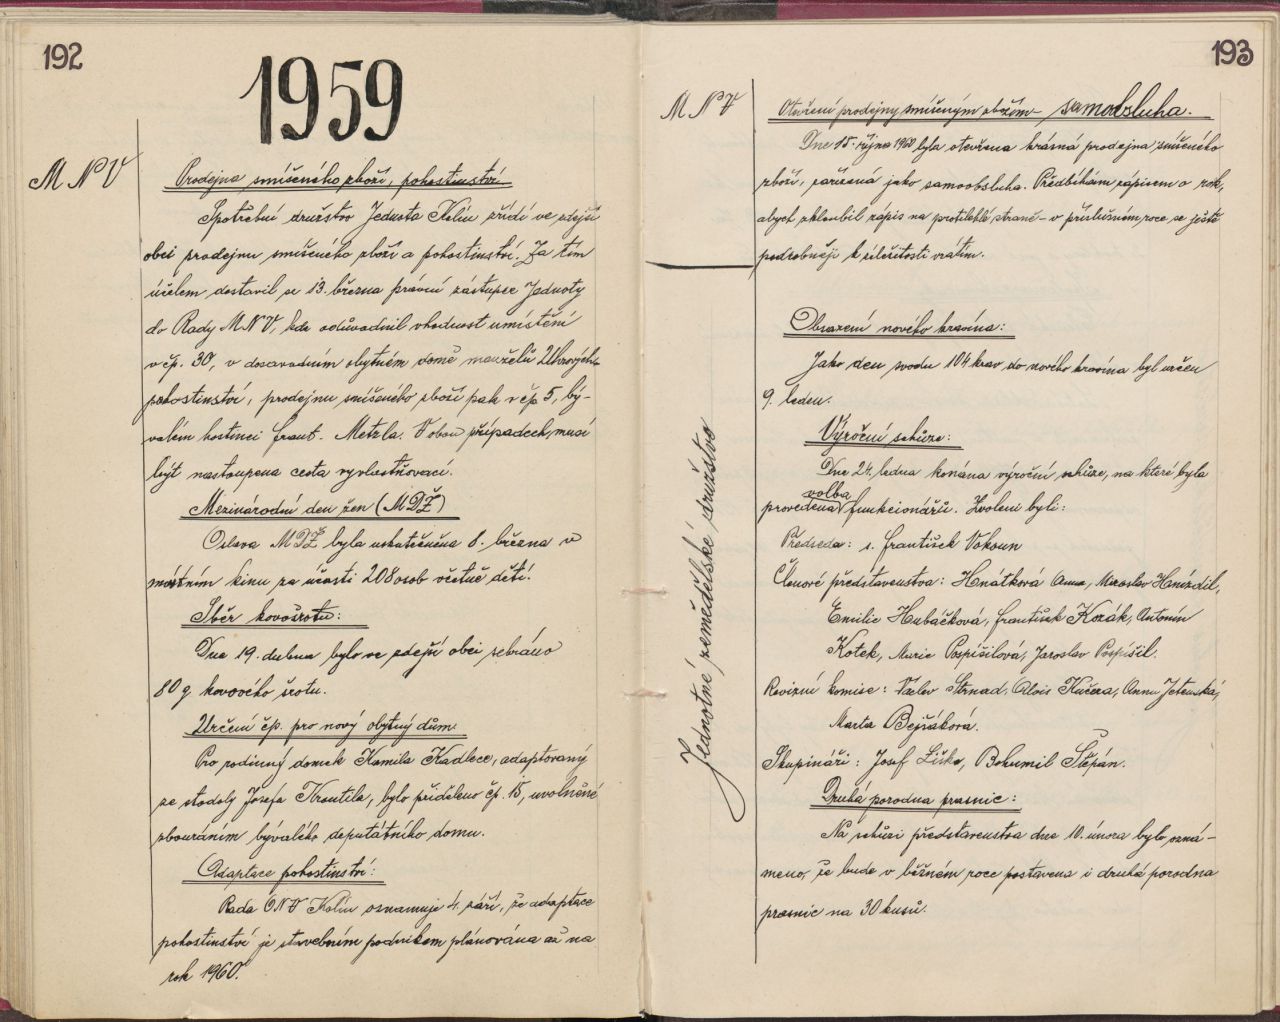 192
1959
M N V
Prodejna smíšeného zboží, pohostinství
Spotřební družstvo Jednota Kolín zřídí ve zdejší
obci prodejnu smíšeného zboží a pohostinství. Za tím
účelem dostavil se 13. března právní zástupce Jednoty
do Rady M N V, kde odůvodnil vhodnost umístění
v čp. 30, v dosavadním obytném domě manželů Uhrových
pohostinství, prodejnu smíšeného zboží pak v čp 5, bý-
valém hostinci Frant. Metzla. V obou případech musí
být nastoupena cesta vyvlastňovací.
Mezinárodní den žen (M D Ž)
Oslava M D Ž byla uskutečněna 8. března v
místním kinu za účasti 208 osob včetně dětí.
Sběr kovošrotu:
Dne 19. dubna bylo ve zdejší obci sebráno
80 q kovového šrotu.
Určení čp. pro nový obytný dům
Pro rodinný domek Kamila Kadlece, adaptovaný
ze stodoly Josefa Kroutila, bylo přiděleno čp. 15, uvolněné
zbouráním bývalého deputátního domu.
Adaptace pohostinství:
Rada ONV Kolín oznamuje 4. září, že adaptace
pohostinství je stavebním podnikem plánována až na
rok 1960.
193
M N V
Otevření prodejny smíšeným zbožím - samoobsluha.
Dne 15. října 1960 byla otevřena krásná prodejna smíšeného
zboží, zařízená jako samoobsluha. Předbíhám zápisem o rok,
abych skloubil zápis na protilehlé straně - v příslušném roce se ještě
podrobněji k záležitosti vrátím.
Jednotné zemědělské družstvo
Obsazení nového kravína:
Jako den svodu 104 krav do nového kravína byl určen
9. leden.
Výroční schůze:
Dne 24. ledna konána výroční schůze, na které byla
provedena volba funkcionářů. Zvoleni byli:
Předseda: s. František Vokoun
Členové představenstva: Hnátková Anna, Miroslav Hnízdil,
Emilie Hubáčková, František Kozák, Antonín
Kotek, Marie Pospíšilová, Jaroslav Pospíšil.
Revizní komise: Václav Strnad, Alois Kučera, Anna
Marta
Skupináři: Josef Liška, Bohumil Štěpán.
Druhá porodna prasnic:
Na schůzi představenstva dne 10. února bylo ozná-
meno, že bude v běžném roce postavena i druhá porodna
prasnic na 30 kusů.